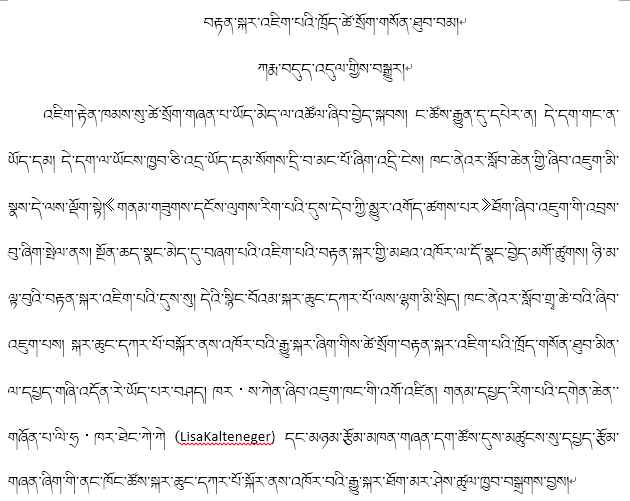 བརྟན་སྐར་འཇིག་པའི་ཁྲོད་ཚེ་སྲོག་གསོན་ཐུབ་བམ།
ཀརྨ་བདུད་འདུལ་གྱིས་བསྒྱུར།
འཇིག་རྟེན་ཁམས་སུ་ཚེ་སྲོག་གཞན་པ་ཡོད་མེད་ལ་འཚོལ་ཞིབ་བྱེད་སྐབས། ང་ཚོས་རྒྱུན་དུ་དཔེར་ན། དེ་དག་གང་ན་
ཡོད་དམ། དེ་དག་ལ་ཡོངས་ཁྱབ་ཅི་འདྲ་ཡོད་དམ་སོགས་དྲི་བ་མང་པོ་ཞིག་འདྲི་ངེས། ཁང་ནེའར་སློབ་ཆེན་གྱི་ཞིབ་འཇུག་མི་
སྣས་དེ་ལས་ལྡོག་སྟེ།《གནམ་གཟུགས་དངོས་ལུགས་རིག་པའི་དུས་དེབ་ཀྱི་མྱུར་འགོད་ཚགས་པར》ཐོག་ཞིབ་འཇུག་གི་འབྲས་
བུ་ཞིག་སྤེལ་ནས། སྔོན་ཆད་སྣང་མེད་དུ་བཞག་པའི་འཇིག་པའི་བརྟན་སྐར་གྱི་མཐའ་འཁོར་ལ་དོ་སྣང་བྱེད་མགོ་ཚུགས། ཉི་མ་
ལྟ་བུའི་བརྟན་སྐར་འཇིག་པའི་དུས་སུ། དེའི་སྙིང་པོའམ་སྐར་ཆུང་དཀར་པོ་ལས་ལྷག་མི་སྲིད། ཁང་ནེའར་སློབ་གྲྭ་ཆེ་བའི་ཞིབ་
འཇུག་པས། སྐར་ཆུང་དཀར་པོ་བསྐོར་ནས་འཁོར་བའི་རྒྱུ་སྐར་ཞིག་གིས་ཚེ་སྲོག་བརྟན་སྐར་འཇིག་པའི་ཁྲོད་གསོན་ཐུབ་མིན་
ལ་དཔྱད་གཞི་འདོན་རེ་ཡོད་པར་བཤད། ཁར་·ས་ཀེན་ཞིབ་འཇུག་ཁང་གི་འགོ་འཛིན། གནམ་དཔྱད་རིག་པའི་དགེན་ཆེན་
གཞོན་པ་ལི་ཧྲ·ཁར་ཐེང་ཀེ་ཀེ（LisaKalteneger）དང་མཉམ་རྩོམ་མཁན་གཞན་དག་ཚོས་དུས་མཚུངས་སུ་དཔྱད་རྩོམ་
གཞན་ཞིག་གི་ནང་ཁོང་ཚོས་སྐར་ཆུང་དཀར་པོ་སྐོར་ནས་འཁོར་བའི་རྒྱུ་སྐར་ཐོག་མར་ཤེས་ཚུལ་ཁྱབ་བསྒྲགས་བྱས།